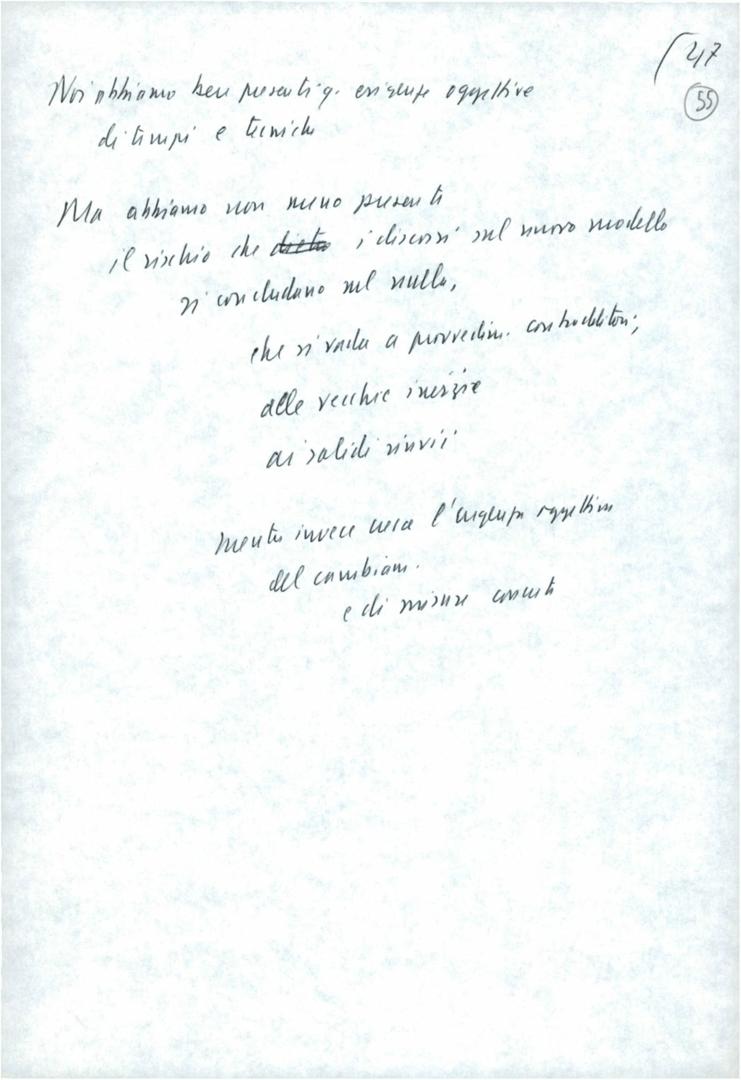 47
55
Noi abbiamo ben presenti q. esigenze oggettive
di tempi e tecniche
Ma abbiamo non meno presenti
il rischio che dietro i discorsi sul nuovo modello
si concludano nel nulla,
che si vada a provvedim. contraddittori,
alle vecchie inerzie
ai soliti rinvii
mentre invece cresce l'esigenza oggettiva
del cambiam.
e di misure